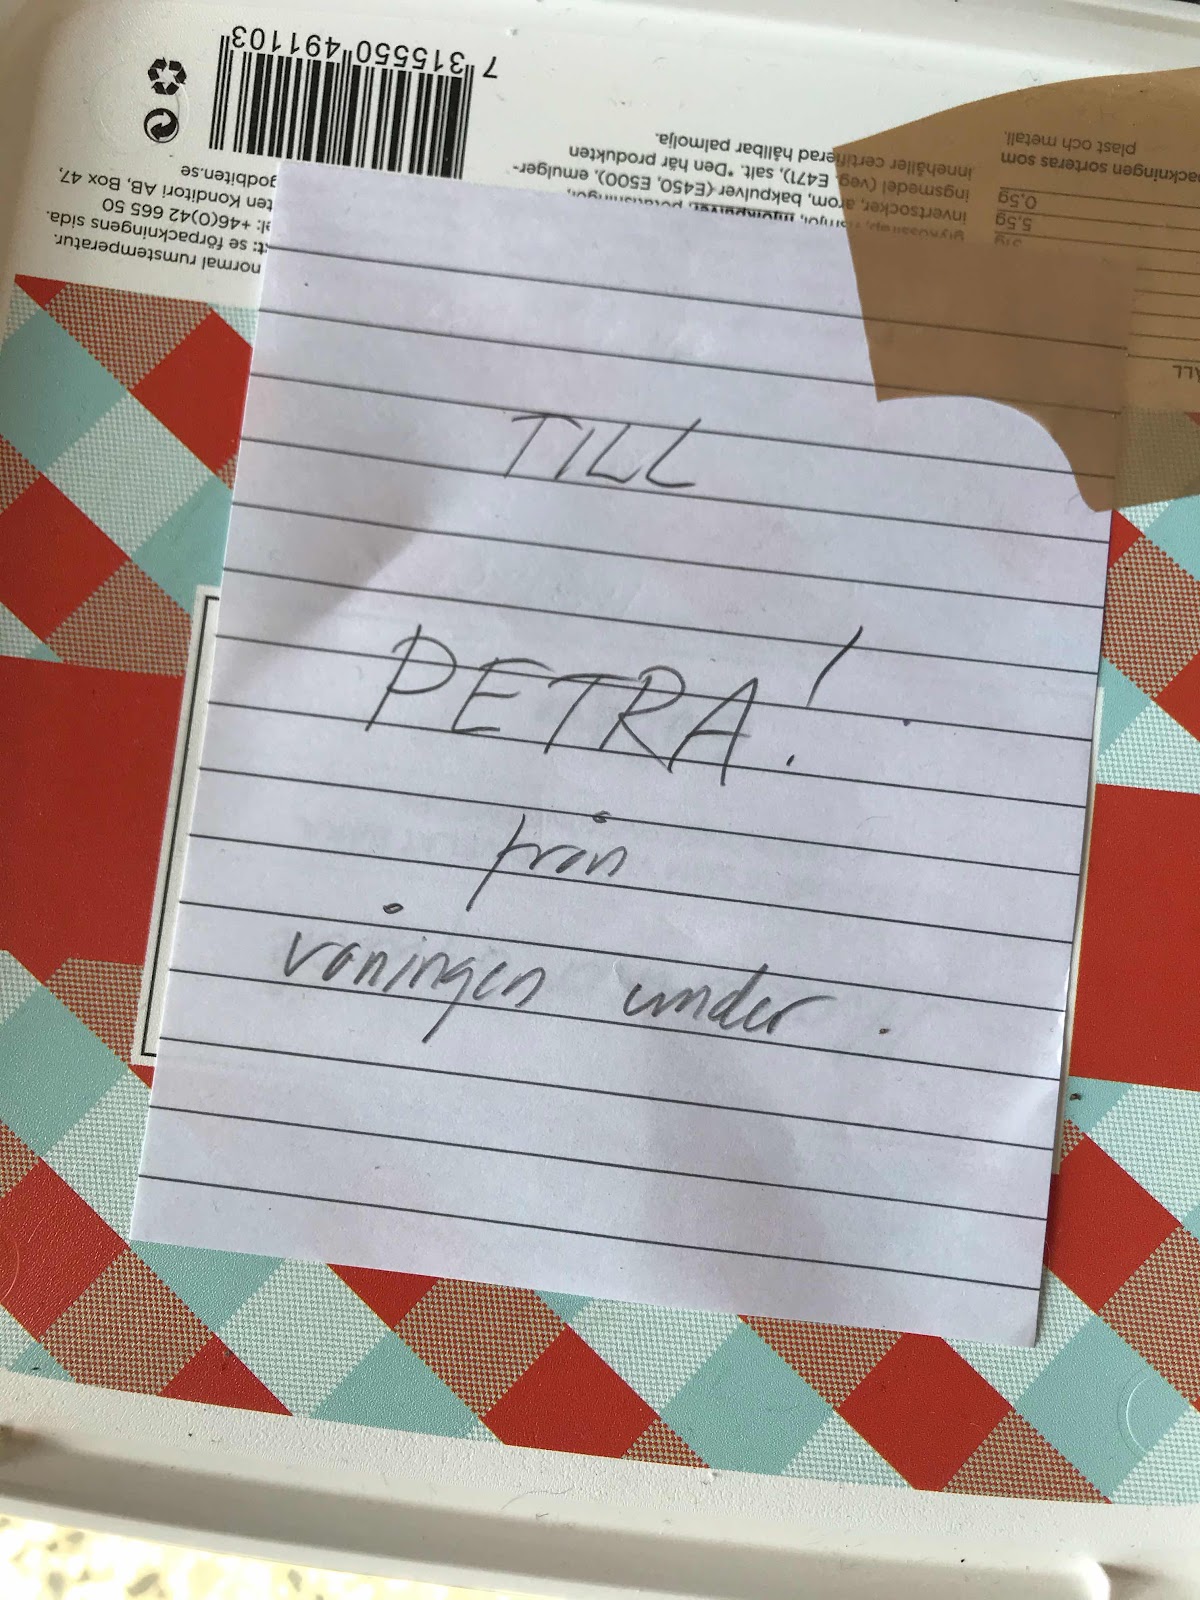 TILL
PETRA!
från
våningen under.
7 315550 491103
normal rumstemperatur.
t: se förpackningens sida.
el: +46(0)42 665 50
ten Konditori AB, Box 47,
godbiten.se
invertsocker, arom, bakpulver (E450, E500), emulger-
ingsmedel (veg. E471), salt. *Den här produkten
innehåller certifierad hållbar palmolja.
31g
5,5g
0,5g
packningen sorteras som
plast och metall.
ALL